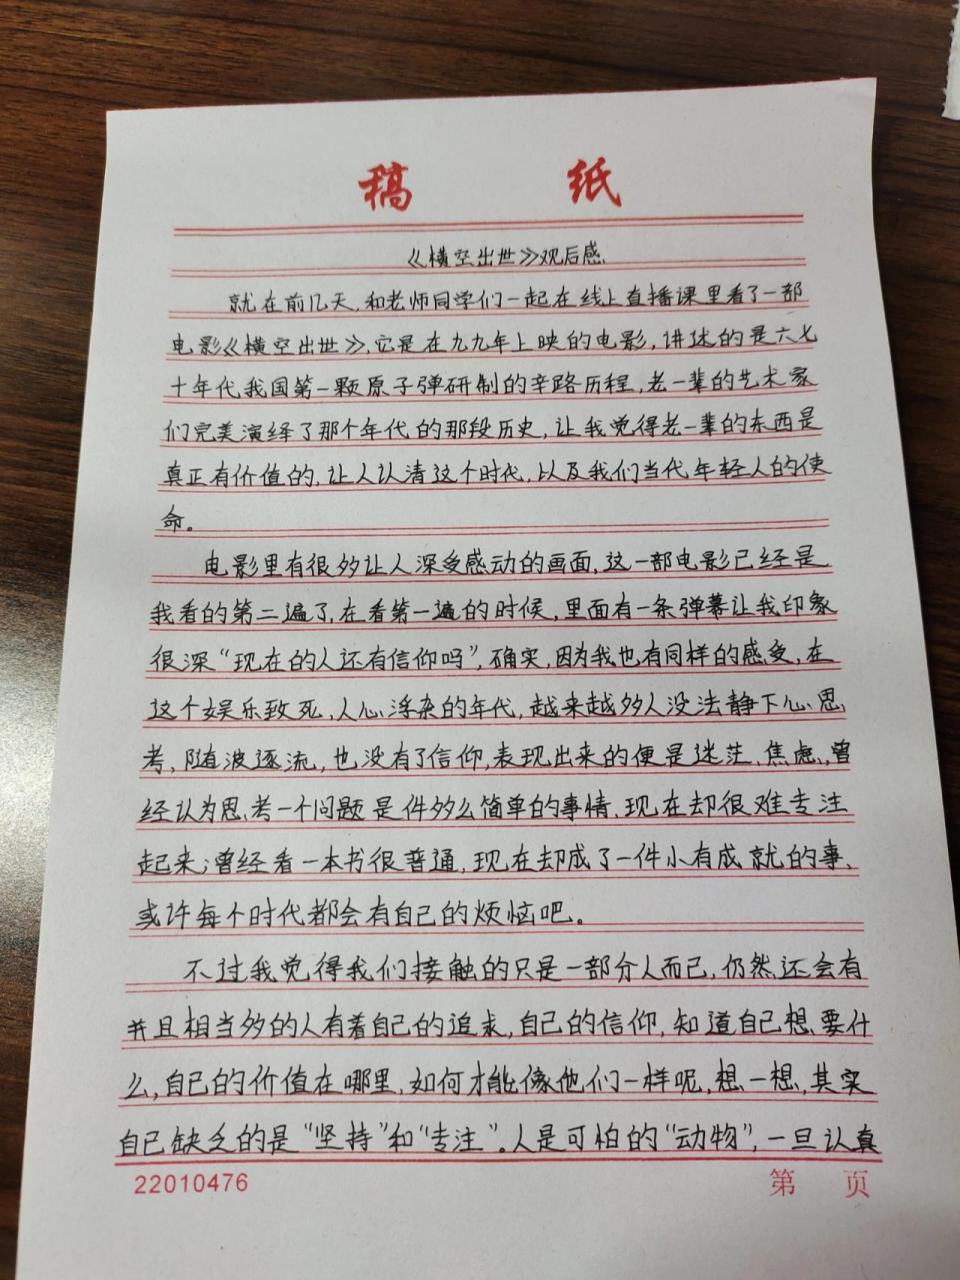 稿 纸
《横空出世》观后感
就在前几天,和老师同学们一起在线上直播课里看了一部
电影《横空出世》,它是在九九年上映的电影,讲述的是六七
十年代我国第一颗原子弹研制的辛路历程,老一辈的艺术家
们完美演绎了那个年代的那段历史,让我觉得老一辈的东西是
真正有价值的,让人认清这个时代,以及我们当代年轻人的使
命。
电影里有很多让人深受感动的画面,这一部电影已经是
我看的第二遍了,在看第一遍的时候,里面有一条弹幕让我印象
很深“现在的人还有信仰吗”,确实,因为我也有同样的感受,在
这个娱乐致死,人心浮杂的年代,越来越多人没法静下心、思
考,随波逐流,也没有了信仰,表现出来的便是迷茫、焦虑,曾
经认为思考一个问题是件多么简单的事情,现在却很难专注
起来;曾经看一本书很普通,现在却成了一件小有成就的事、
或许每个时代都会有自己的烦恼吧。
不过我觉得我们接触的只是一部分人而已,仍然还会有
并且相当多的人有着自己的追求,自己的信仰,知道自己想要什
么,自己的价值在哪里,如何才能像他们一样呢,想一想,其实
自己缺乏的是“坚持”和“专注”。人是可怕的“动物”,一旦认真
22010476 第 页